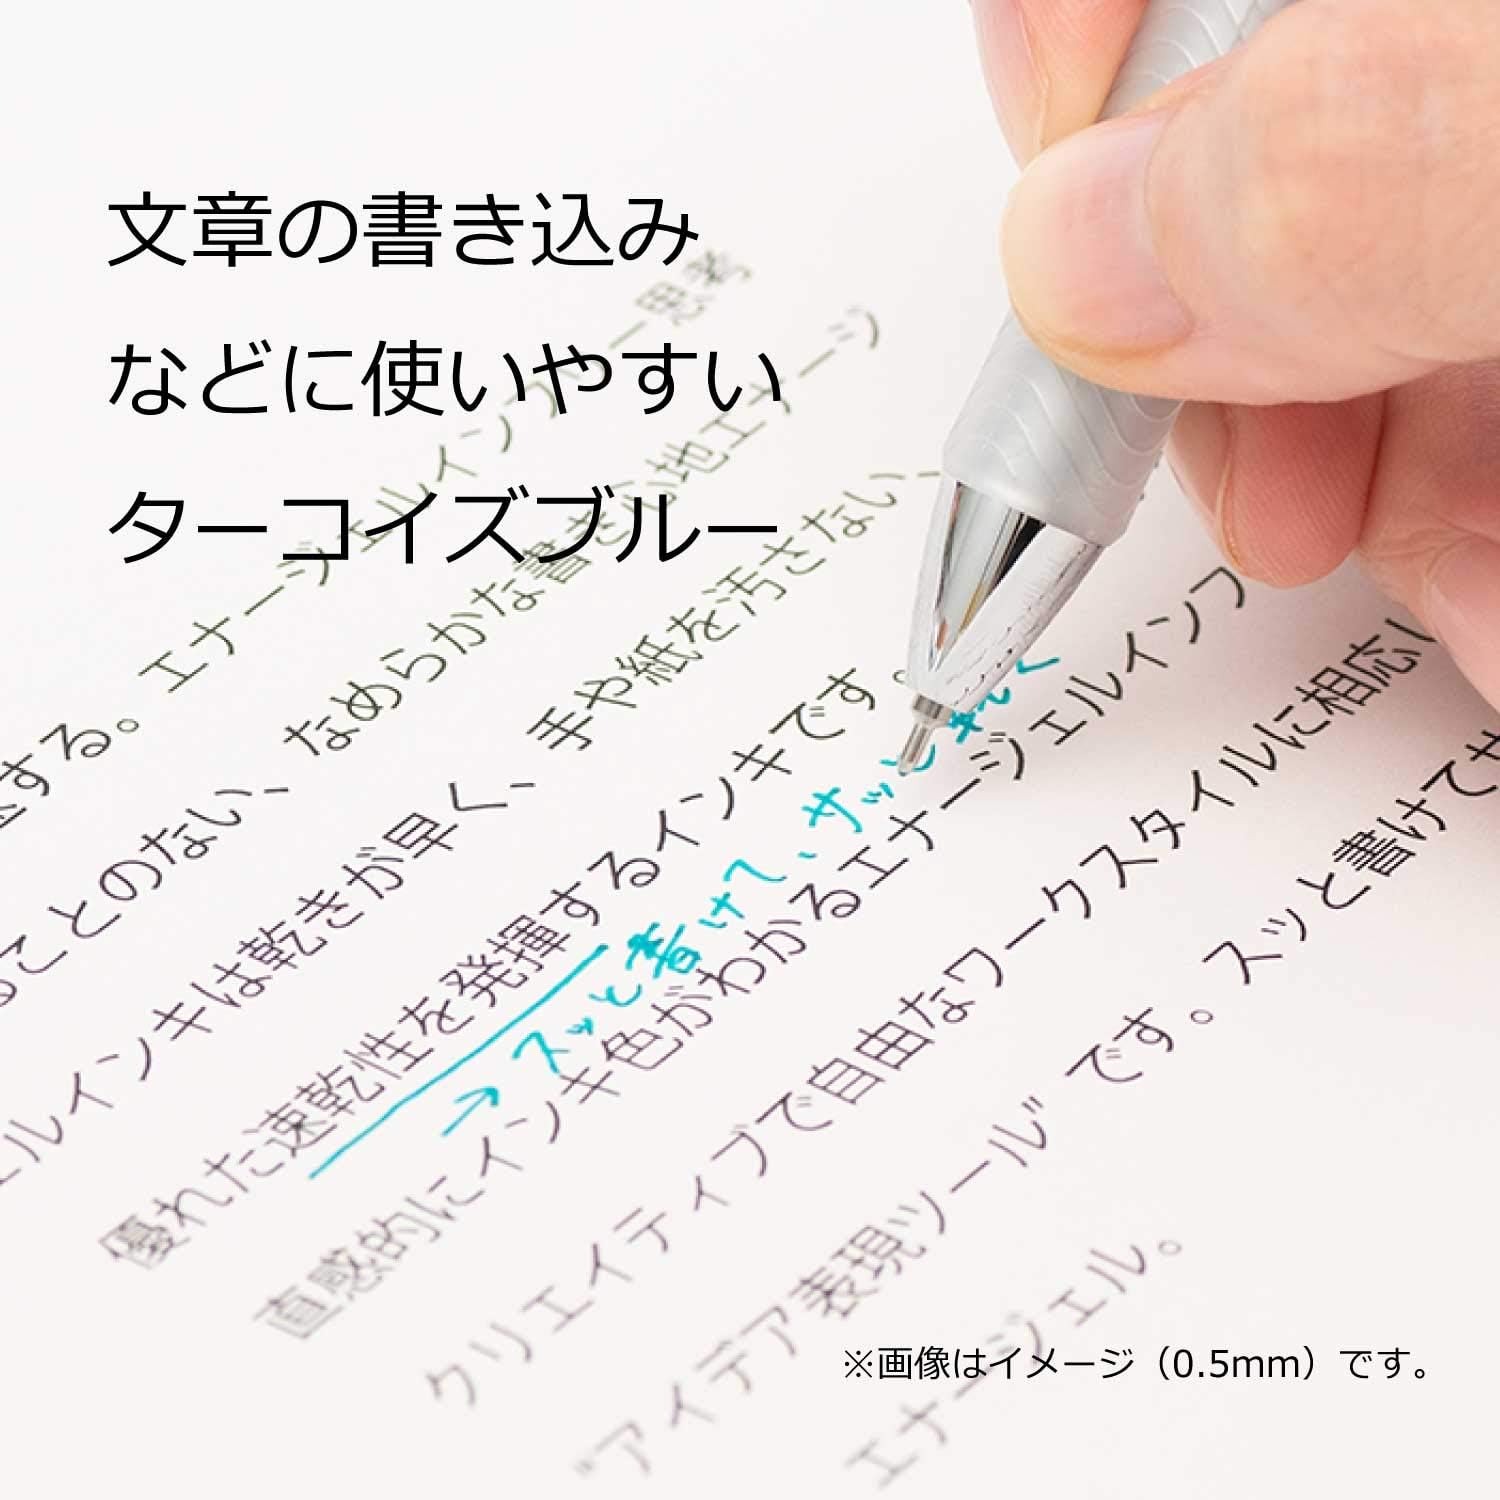 文章の書き込み
などに使いやすい
ターコイズブルー
する。エナージェルインフリー思考
ることのない、なめらかな書き心地エナージ
ェルインキは乾きが早く、手や紙を汚さない、
優れた速乾性を発揮するインキです。
→スッと書けて、サッと乾く
直感的にインキ色がわかるエナージェルインフ
クリエイティブで自由なワークスタイルに相応し
"アイデア表現ツール"です。スッと書けてサ
エナージェル。
※画像はイメージ（0.5mm）です。